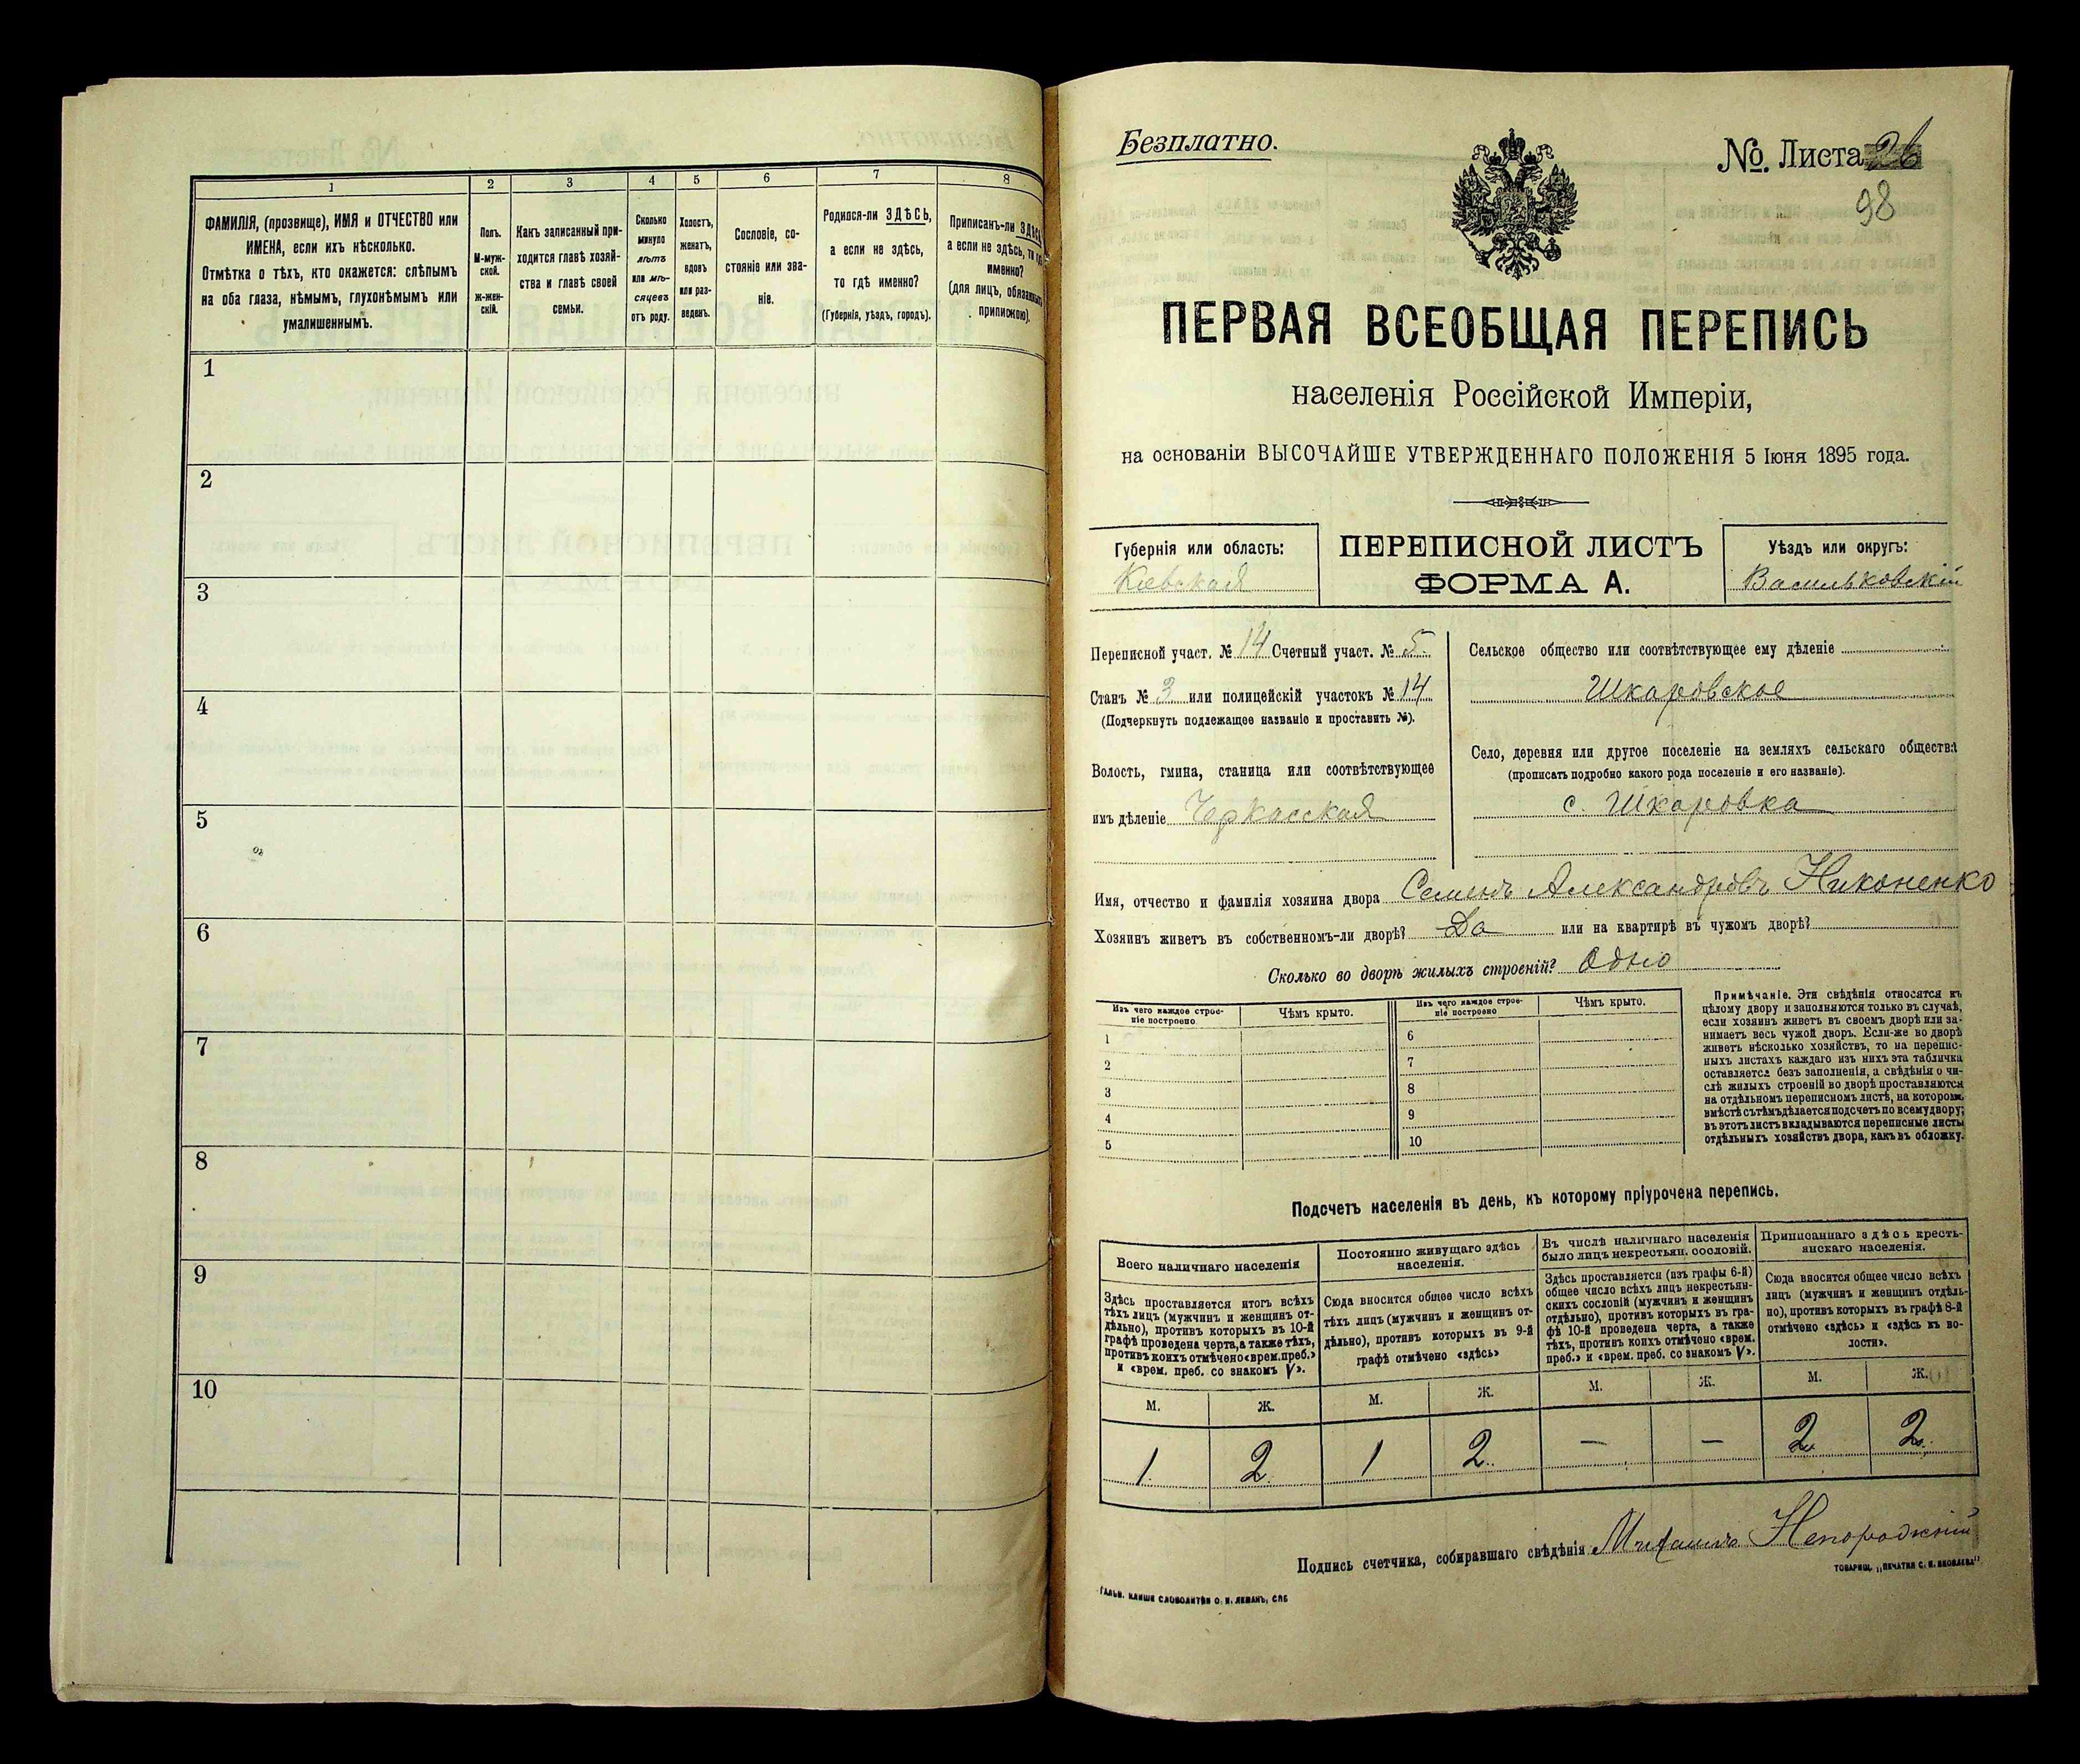 1 2 3 4 5 6 7 8
ФАМИЛІЯ, (прозвище), ИМЯ и ОТЧЕСТВО или
ИМЕНА, если ихъ нѣсколько.
Отмѣтка о тѣхъ, кто окажется: слѣпымъ
на оба глаза, нѣмымъ, глухонѣмымъ или
умалишеннымъ.
Полъ.
М-муж-
ской.
ж-жен-
скій.
Какъ записанный при-
ходится главѣ хозяй-
ства и главѣ своей
семьи.
Сколько
минуло
лѣтъ
или мѣ-
сяцевъ
отъ роду.
Холостъ,
женатъ,
вдовъ
или раз-
веденъ.
Сословіе, со-
стояніе или зва-
ніе.
Родился-ли ЗДѢСЬ,
а если не здѣсь,
то гдѣ именно?
(Губернія, уѣздъ, городъ).
Приписанъ-ли ЗДѢСЬ
а если не здѣсь, то гдѣ
именно?
(для лицъ, обязанныхъ
припиской).
1
2
3
4
5
6
7
8
9
10
Безплатно.
№ Листа 26
98
ПЕРВАЯ ВСЕОБЩАЯ ПЕРЕПИСЬ
населенія Россійской Имперіи,
на основаніи ВЫСОЧАЙШЕ УТВЕРЖДЕННАГО ПОЛОЖЕНІЯ 5 Іюня 1895 года.
Губернія или область:
Кіевская
ПЕРЕПИСНОЙ ЛИСТЪ
ФОРМА А.
Уѣздъ или округъ:
Васильковскій
Переписной участ. № 14 Счетный участ. № 5.
Станъ № 3 или полицейскій участокъ № 14
(Подчеркнуть подлежащее названіе и проставить №).
Волость, гмина, станица или соотвѣтствующее
имъ дѣленіе Черкасская
Сельское общество или соотвѣтствующее ему дѣленіе
Шкаровское
Село, деревня или другое поселеніе на земляхъ сельскаго общества
(прописать подробно какого рода поселеніе и его названіе).
с. Шкаровка
Имя, отчество и фамилія хозяина двора Семенъ Александровъ Никоненко
Хозяинъ живетъ въ собственномъ-ли дворѣ? Да или на квартирѣ въ чужомъ дворѣ?
Сколько во дворѣ жилыхъ строеній? Одно
Изъ чего каждое строе-
ніе построено
Чѣмъ крыто.
Изъ чего каждое строе-
ніе построено
Чѣмъ крыто.
1 6
2 7
3 8
4 9
5 10
Примѣчаніе. Эти свѣдѣнія относятся къ
цѣлому двору и заполняются только въ случаѣ,
если хозяинъ живетъ въ своемъ дворѣ или за-
нимаетъ весь чужой дворъ. Если-же во дворѣ
живетъ нѣсколько хозяйствъ, то на перепис-
ныхъ листахъ каждаго изъ нихъ эта табличка
оставляется безъ заполненія, а свѣдѣнія о чи-
слѣ жилыхъ строеній во дворѣ проставляются
на отдѣльномъ переписномъ листѣ, на которомъ
вмѣстѣ съ тѣмъ дѣлается подсчетъ по всему двору;
въ этотъ листъ вкладываются переписные листы
отдѣльныхъ хозяйствъ двора, какъ въ обложку.
Подсчетъ населенія въ день, къ которому пріурочена перепись.
Всего наличнаго населенія
Здѣсь проставляется итогъ всѣхъ
тѣхъ лицъ (мужчинъ и женщинъ от-
дѣльно), противъ которыхъ въ 10-й
графѣ проведена черта, а также тѣхъ,
противъ коихъ отмѣчено «врем. преб.»
и «врем. преб. со знакомъ V».
Постоянно живущаго здѣсь
населенія.
Сюда вносится общее число всѣхъ
тѣхъ лицъ (мужчинъ и женщинъ от-
дѣльно), противъ которыхъ въ 9-й
графѣ отмѣчено «здѣсь»
Въ числѣ наличнаго населенія
было лицъ некрестьян. сословій.
Здѣсь проставляется (изъ графы 6-й)
общее число всѣхъ лицъ некрестьян-
скихъ сословій (мужчинъ и женщинъ
отдѣльно), противъ которыхъ въ гра-
фѣ 10-й проведена черта, а также
тѣхъ, противъ коихъ отмѣчено «врем.
преб.» и «врем. преб. со знакомъ V».
Приписаннаго здѣсь кресть-
янскаго населенія.
Сюда вносится общее число всѣхъ
лицъ (мужчинъ и женщинъ отдѣль-
но), противъ которыхъ въ графѣ 8-й
отмѣчено «здѣсь» и «здѣсь къ во-
лости».
М. Ж. М. Ж. М. Ж. М. Ж.
1. 2. 1 2. — — 2 2.
Подпись счетчика, собиравшаго свѣдѣнія Михаилъ
ГАЛЬВ. КЛИШЕ СЛОВОЛИТНИ О. И. ЛЕМАНЪ, СПБ
ТОВАРИЩ. „ПЕЧАТНЯ С. П. ЯКОВЛЕВА"